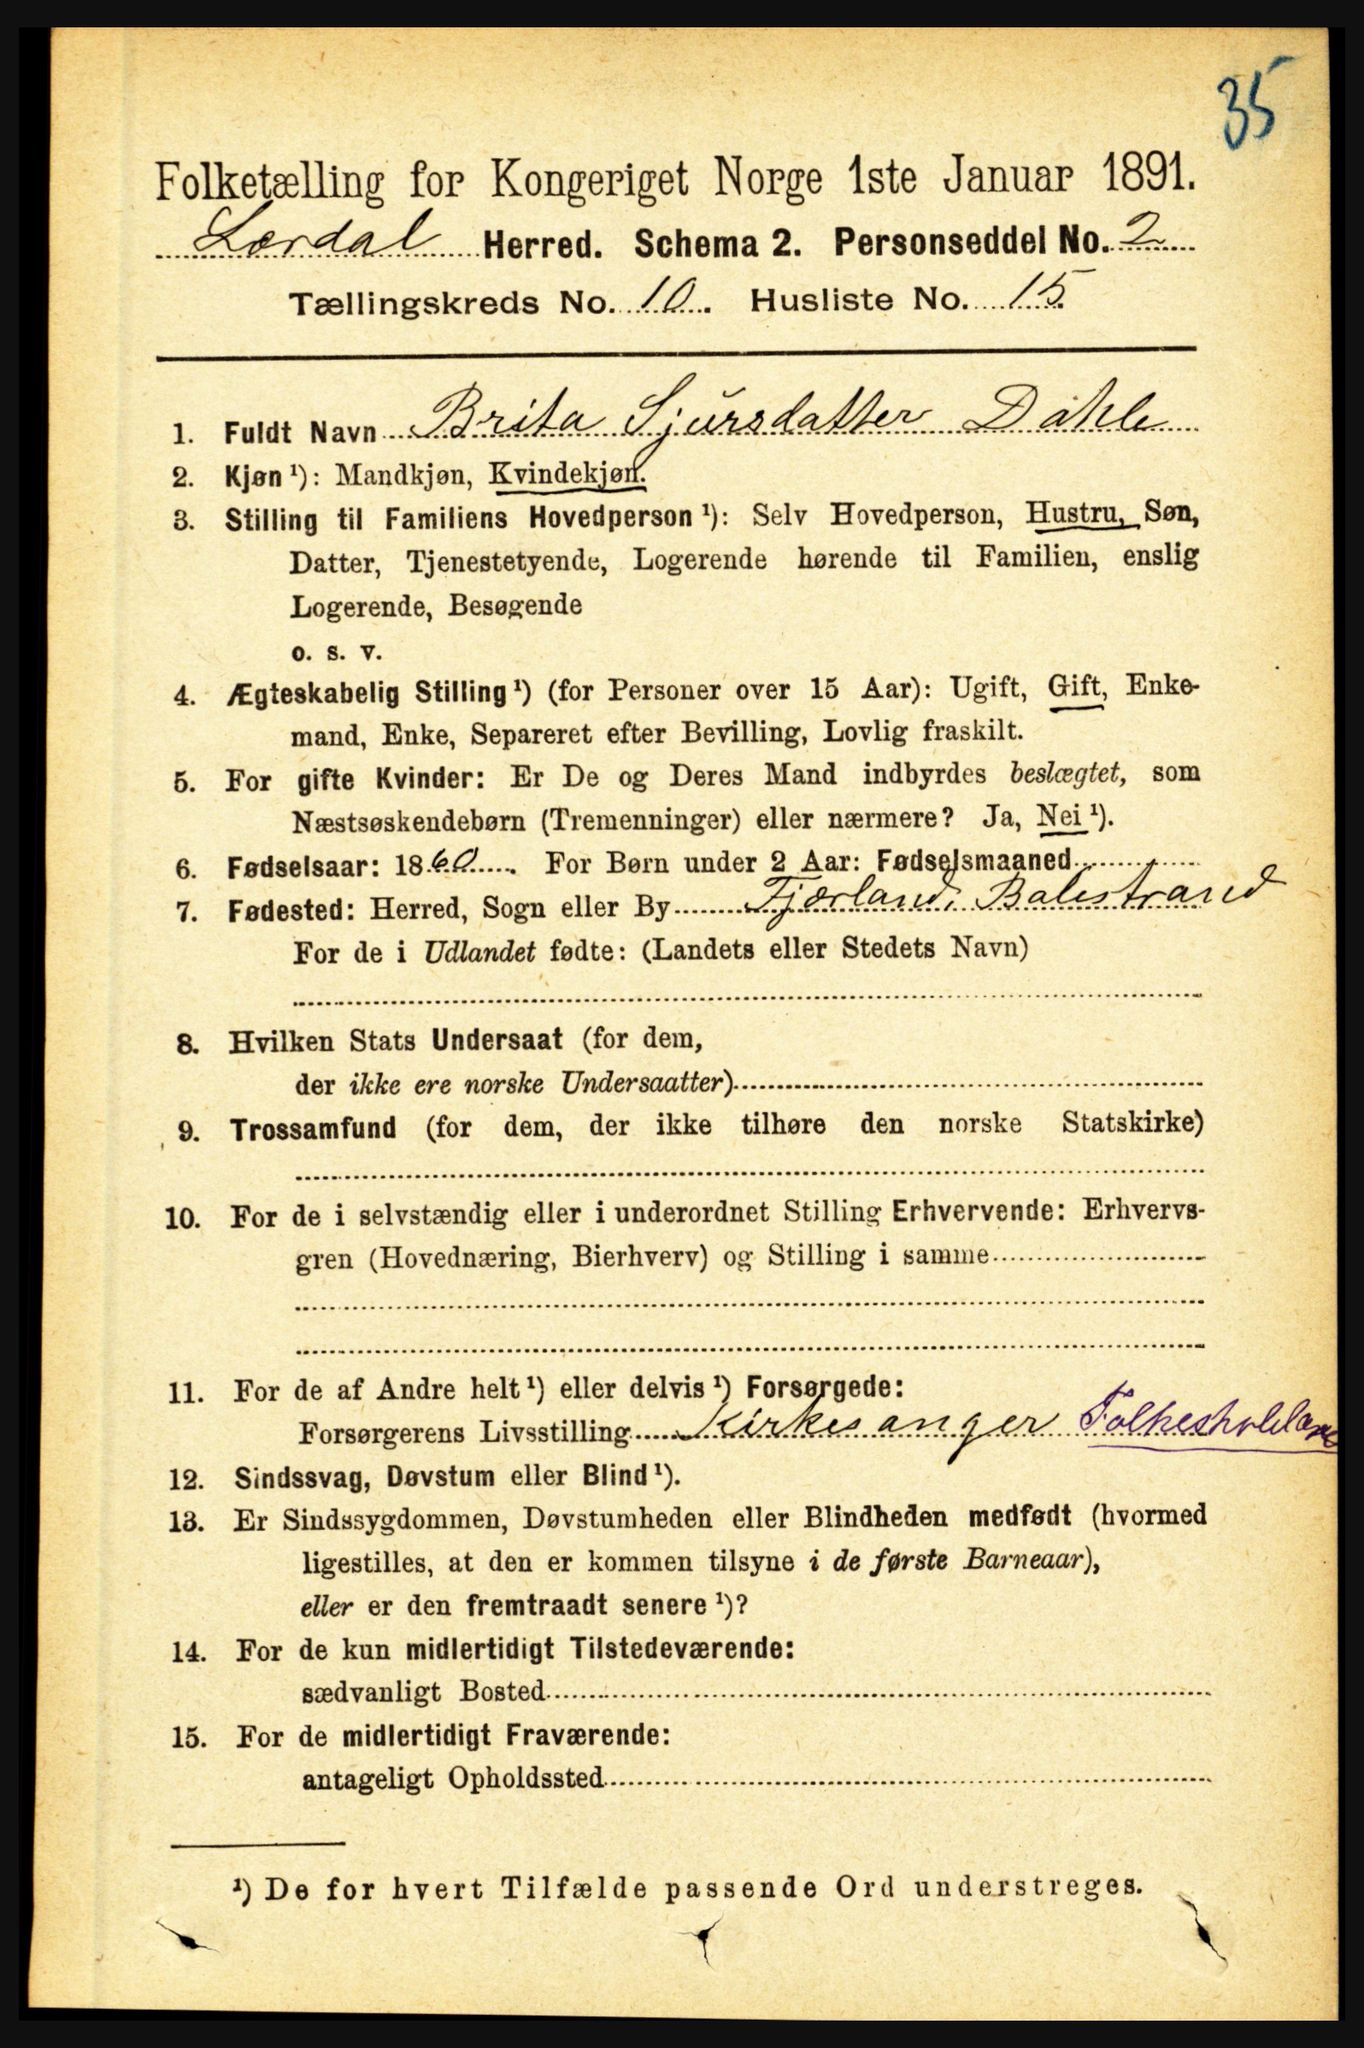 35
Folketælling for Kongeriget Norge 1ste Januar 1891.
Lærdal Herred. Schema 2. Personseddel No. 2
Tællingskreds No. 10. Husliste No. 15.
1. Fuldt Navn Brita Sjursdatter Dahle
2. Kjøn ¹): Mandkjøn, Kvindekjøn.
3. Stilling til Familiens Hovedperson ¹): Selv Hovedperson, Hustru, Søn,
Datter, Tjenestetyende, Logerende hørende til Familien, enslig
Logerende, Besøgende
o. s. v.
4. Ægteskabelig Stilling ¹) (for Personer over 15 Aar): Ugift, Gift, Enke-
mand, Enke, Separeret efter Bevilling, Lovlig fraskilt.
5. For gifte Kvinder: Er De og Deres Mand indbyrdes beslægtet, som
Næstsøskendebørn (Tremenninger) eller nærmere? Ja, Nei ¹).
6. Fødselsaar: 1860. For Børn under 2 Aar: Fødselsmaaned
7. Fødested: Herred, Sogn eller By Fjærland, Balestrand
For de i Udlandet fødte: (Landets eller Stedets Navn)
8. Hvilken Stats Undersaat (for dem,
der ikke ere norske Undersaatter)
9. Trossamfund (for dem, der ikke tilhøre den norske Statskirke)
10. For de i selvstændig eller i underordnet Stilling Erhvervende: Erhvervs-
gren (Hovednæring, Bierhverv) og Stilling i samme
11. For de af Andre helt ¹) eller delvis ¹) Forsørgede:
Forsørgerens Livsstilling Kirkesanger
12. Sindssvag, Døvstum eller Blind ¹).
13. Er Sindssygdommen, Døvstumheden eller Blindheden medfødt (hvormed
ligestilles, at den er kommen tilsyne i de første Barneaar),
eller er den fremtraadt senere ¹)?
14. For de kun midlertidigt Tilstedeværende:
sædvanligt Bosted
15. For de midlertidigt Fraværende:
antageligt Opholdssted
¹) De for hvert Tilfælde passende Ord understreges.